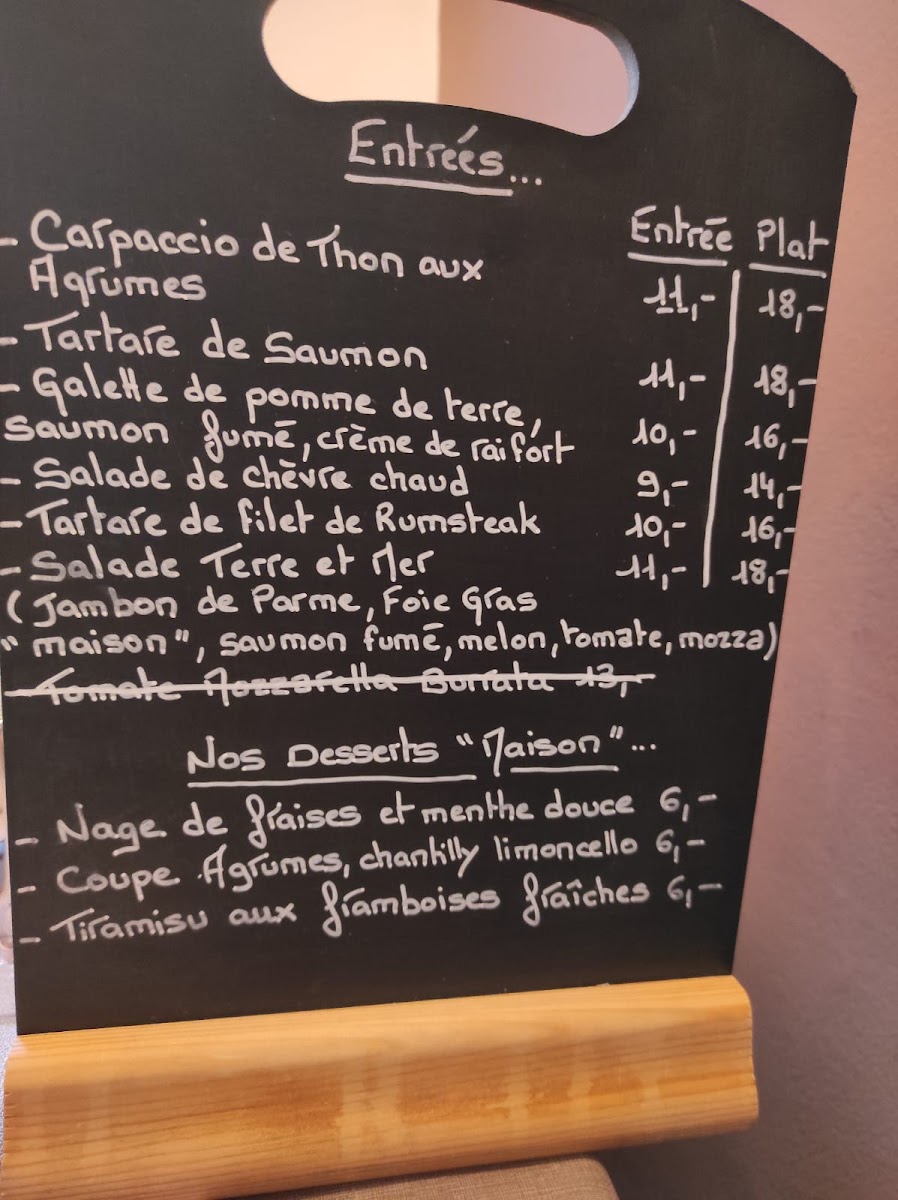 Entreés...
Entrée Plat
- Carpaccio de Thon aux
Agrumes 11,- 18,-
- Tartare de Saumon 11,- 18,-
- Galette de pomme de terre,
saumon fumé, crème de raifort 10,- 16,-
- Salade de chèvre chaud 9,- 14,-
- Tartare de filet de Rumsteak 10,- 16,-
- Salade Terre et Mer 11,- 18,-
(Jambon de Parme, Foie Gras
"maison", saumon fumé, melon, tomate, mozza)
Tomate Mozzarella Burrata 13,-
Nos Desserts "Maison"...
- Nage de fraises et menthe douce 6,-
- Coupe Agrumes, chantilly limoncello 6,-
- Tiramisu aux framboises fraîches 6,-